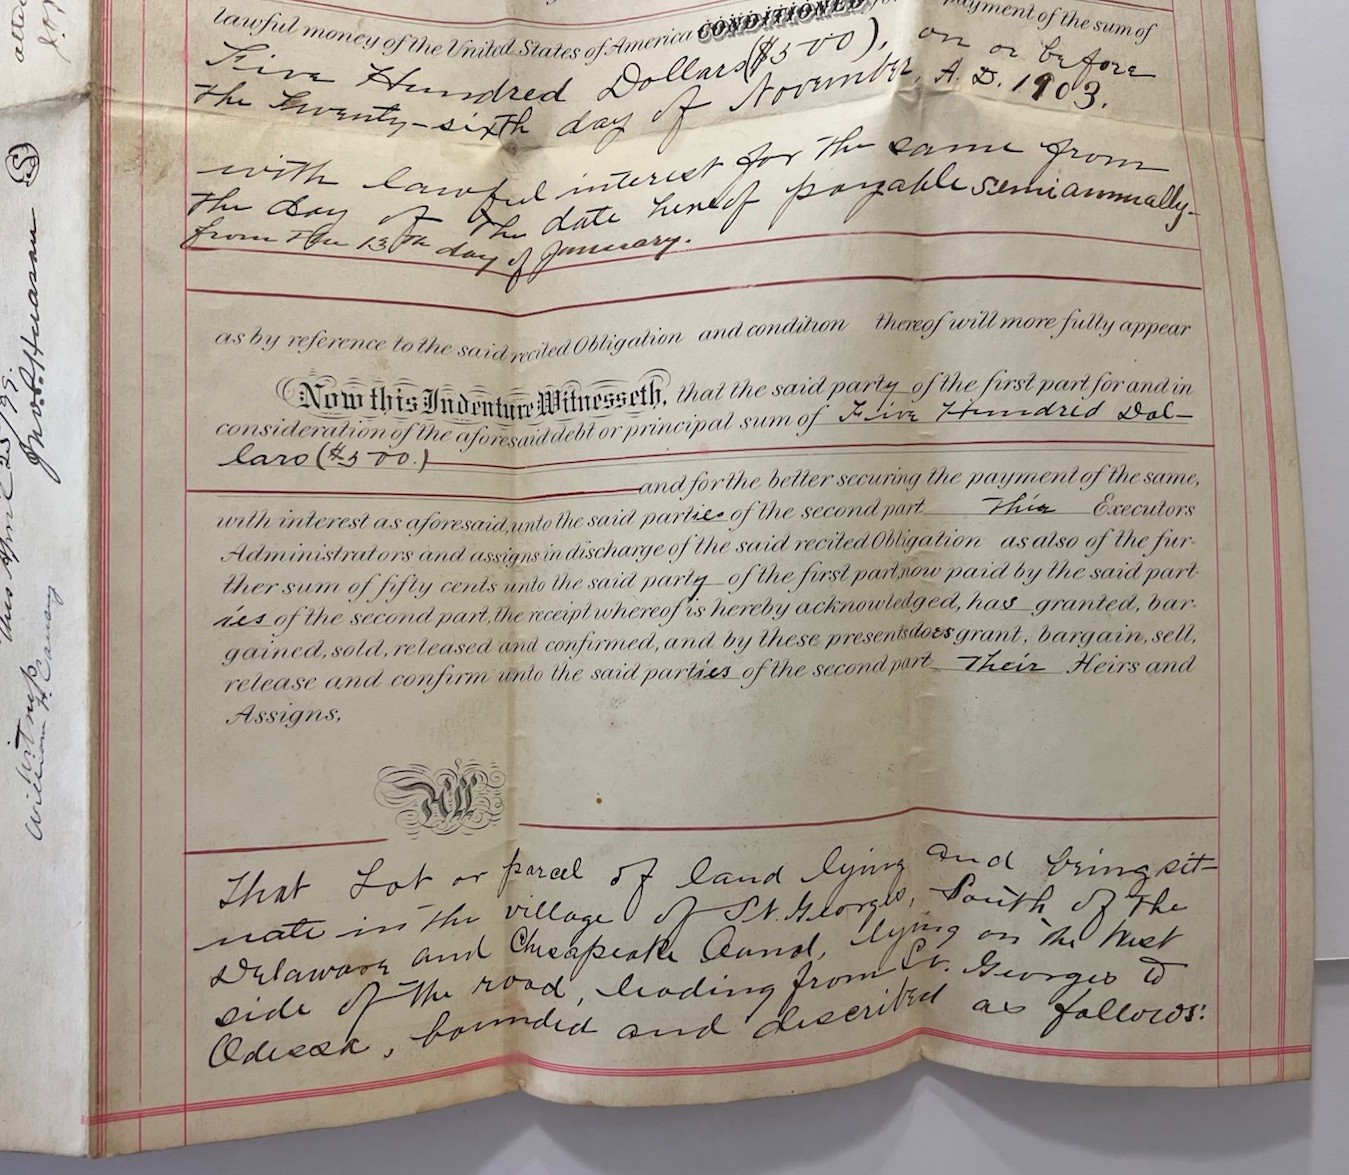 lawful money of the United States of America CONDITIONED for payment of the sum of
Five Hundred Dollars ($500), on or before
the twenty-sixth day of November, A. D. 1903.
with lawful interest for the same from
the day of the date hereof payable semiannually-
from the 13th day of January.
as by reference to the said recited Obligation and condition thereof will more fully appear
Now this Indenture Witnesseth, that the said party of the first part for and in
consideration of the aforesaid debt or principal sum of Five Hundred Dol-
lars ($500.)
and for the better securing the payment of the same,
with interest as aforesaid, unto the said parties of the second part Their Executors
Administrators and assigns in discharge of the said recited Obligation as also of the fur-
ther sum of fifty cents unto the said party of the first part, now paid by the said part
ies of the second part, the receipt whereof is hereby acknowledged, has granted, bar-
gained, sold, released and confirmed, and by these presents does grant, bargain, sell,
release and confirm unto the said parties of the second part Their Heirs and
Assigns,
All
That Lot or parcel of land lying and being sit-
uate in the village of St. Georges, South of the
Delaware and Chesapeake Canal, lying on the West
side of the road, leading from St. Georges to
Odessa, bounded and described as follows:
this April 25/99.
witness